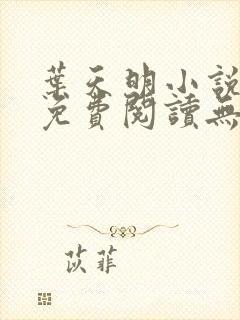 葉天明小說
免費閱讀無
苡菲